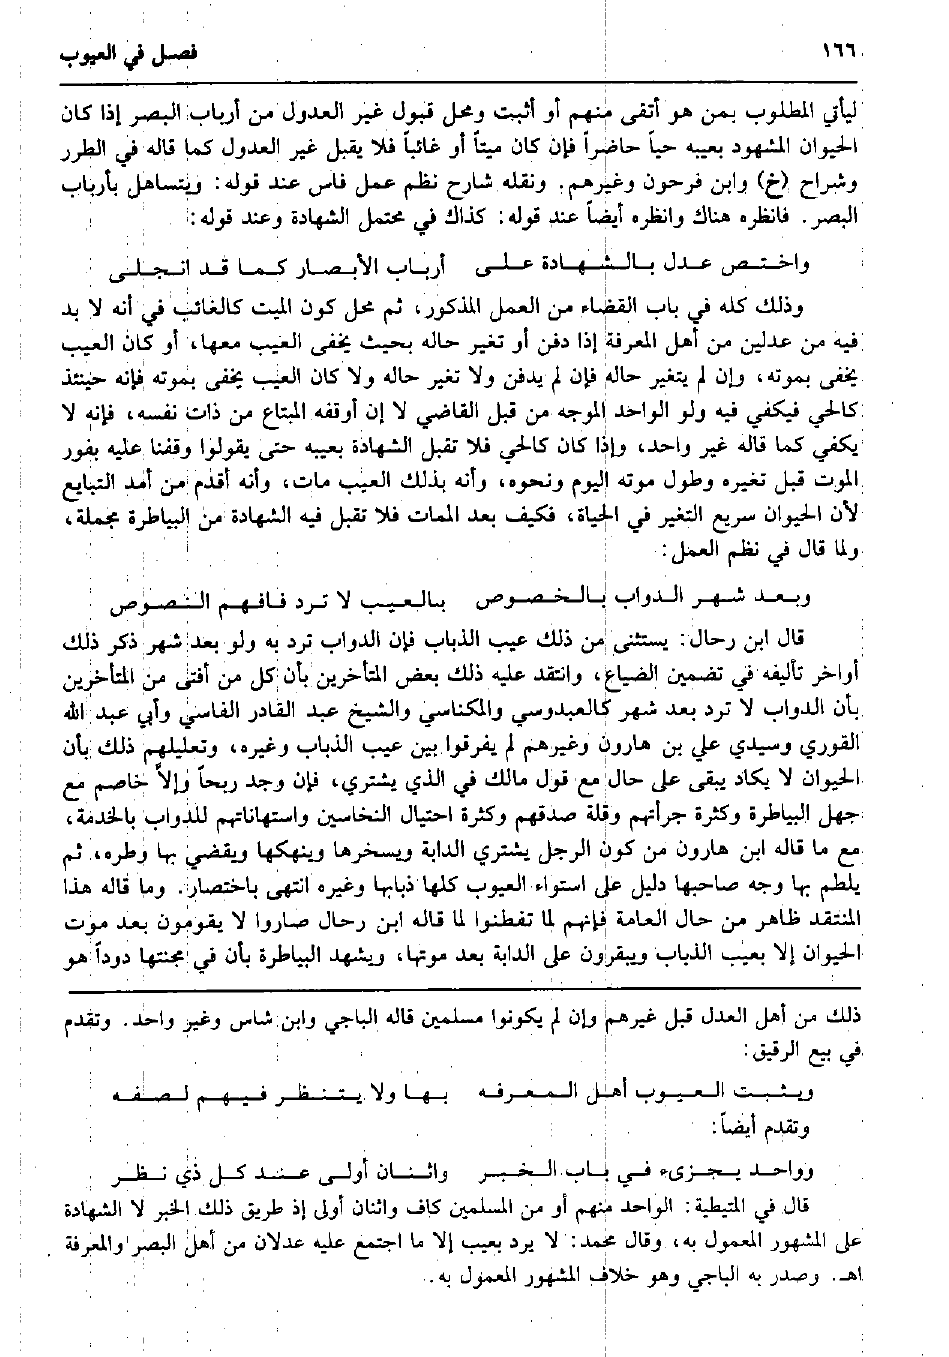 ١٦٦ فصل في العيوب
ليأتي المطلوب بمن هو أتقى منهم أو أثبت ومحل قبول غير العدول من أرباب البصر إذا كان
الحيوان المشهود بعيبه حياً حاضراً فإن كان ميتاً أو غائباً فلا يقبل غير العدول كما قاله في الطرر
وشراح (خ) وابن فرحون وغيرهم. ونقله شارح نظم عمل فاس عند قوله: ويتساهل بأرباب
البصر. فانظره هناك وانظره أيضاً عند قوله: كذاك في محتمل الشهادة وعند قوله:
واختص عدل بالشهادة على أرباب الأبصار كما قد انجلى
وذلك كله في باب القضاء من العمل المذكور، ثم محل كون الميت كالغائب في أنه لا بد
فيه من عدلين من أهل المعرفة إذا دفن أو تغير حاله بحيث يخفى العيب معها، أو كان العيب
يخفى بموته، وإن لم يتغير حاله فإن لم يدفن ولا تغير حاله ولا كان العيب يخفى بموته فإنه حينئذ
كالحي فيكفي فيه ولو الواحد الموجه من قبل القاضي لا إن أوقفه المبتاع من ذات نفسه، فإنه لا
يكفي كما قاله غير واحد، وإذا كان كالحي فلا تقبل الشهادة بعيبه حتى يقولوا وقفنا عليه بفور
الموت قبل تغيره وطول موته اليوم ونحوه، وأنه بذلك العيب مات، وأنه أقدم من أمد التبايع
لأن الحيوان سريع التغير في الحياة، فكيف بعد الممات فلا تقبل فيه الشهادة من البياطرة مجملة،
ولما قال في نظم العمل:
وبعد شهر الدواب بالخصوص بالعيب لا ترد فافهم النصوص
قال ابن رحال: يستثنى من ذلك عيب الذباب فإن الدواب ترد به ولو بعد شهر ذكر ذلك
أواخر تأليفه في تضمين الضياع، وانتقد عليه ذلك بعض المتأخرين بأن كل من أفتى من المتأخرين
بأن الدواب لا ترد بعد شهر كالعبدوسي والمكناسي والشيخ عبد القادر الفاسي وأبي عبد الله
القوري وسيدي علي بن هارون وغيرهم لم يفرقوا بين عيب الذباب وغيره، وتعليلهم ذلك بأن
الحيوان لا يكاد يبقى على حال مع قول مالك في الذي يشتري، فإن وجد ربحاً وإلاَّ خاصم مع
جهل البياطرة وكثرة جرأتهم وقلة صدقهم وكثرة احتيال النخاسين واستهاناتهم للدواب بالخدمة،
مع ما قاله ابن هارون من كون الرجل يشتري الدابة ويسخرها وينهكها ويقضي بها وطره، ثم
يلطم بها وجه صاحبها دليل على استواء العيوب كلها ذبابها وغيره انتهى باختصار. وما قاله هذا
المنتقد ظاهر من حال العامة فإنهم لما تفطنوا لما قاله ابن رحال صاروا لا يقومون بعد موت
الحيوان إلا بعيب الذباب ويبقرون على الدابة بعد موتها، ويشهد البياطرة بأن في مجنتها دوداً هو
ذلك من أهل العدل قبل غيرهم وإن لم يكونوا مسلمين قاله الباجي وابن شاس وغير واحد. وتقدم
في بيع الرقيق:
ويثبت العيوب أهل المعرفه بها ولا يتنظر فيهم لصفه
وتقدم أيضاً:
وواحد يجزىء في باب الخبر واثنان أولى عند كل ذي نظر
قال في المتيطية: الواحد منهم أو من المسلمين كاف واثنان أولى إذ طريق ذلك الخبر لا الشهادة
على المشهور المعمول به، وقال محمد: لا يرد بعيب إلا ما اجتمع عليه عدلان من أهل البصر والمعرفة
اهـ. وصدر به الباجي وهو خلاف المشهور المعمول به.